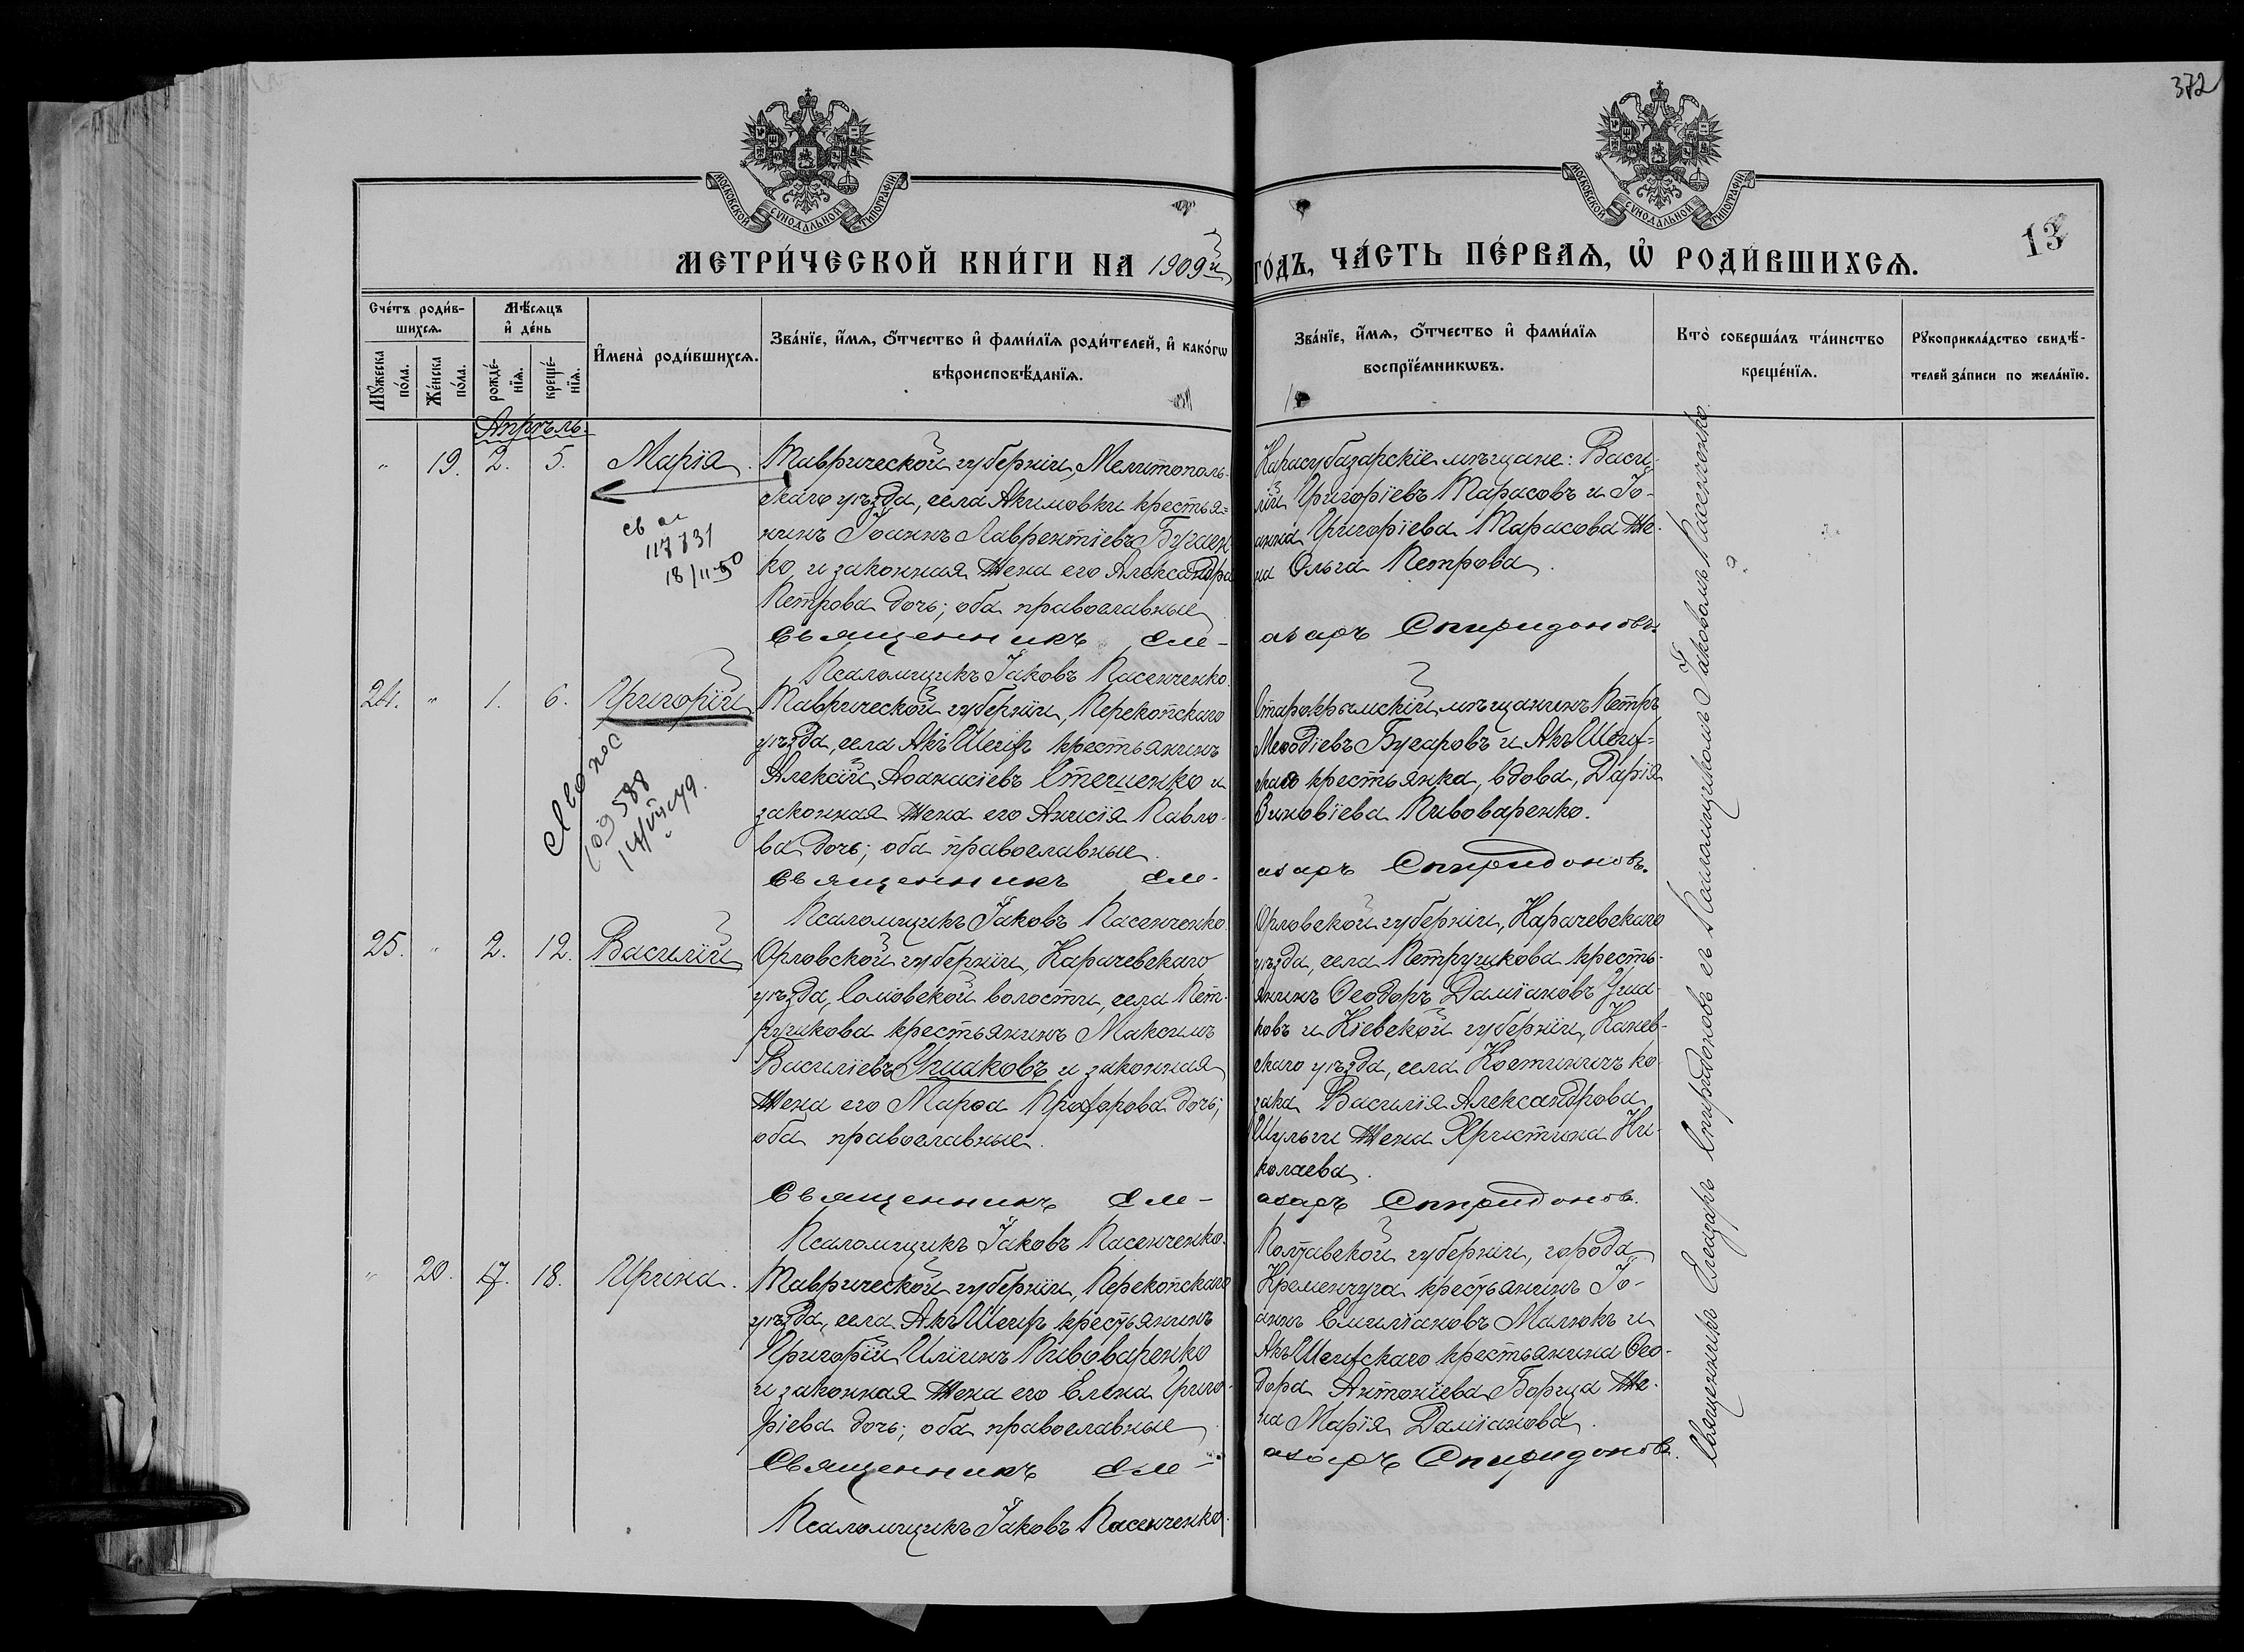 372
13
МОСКОВСКОЙ СУНОДАЛЬНОЙ ТИПОГРАФІИ
МОСКОВСКОЙ СУНОДАЛЬНОЙ ТИПОГРАФІИ
МЕТРИ́ЧЕСКОЙ КНИ́ГИ НА 1909й
ГО́ДЪ, ЧА́СТЬ ПЕ́РВАѦ, Ѡ҆ РОДИ́ВШИХСѦ.
Сче́тъ роди́в-
шихсѧ.
Мꙋ́жеска по́ла.
Же́нска по́ла.
Мѣ́сѧцъ
и҆ де́нь
рожде́-нїѧ.
креще́-нїѧ.
И҆мена̀ роди́вшихсѧ.
Зва́нїе, и҆́мѧ, ѻ҆́тчество и҆ фами́лїѧ роди́телей, и҆ како́гѡ
вѣроисповѣ́данїѧ.
Зва́нїе, и҆́мѧ, ѻ҆́тчество и҆ фами́лїѧ
воспрїе́мникѡвъ.
Кто̀ соверша́лъ та́инство
креще́нїѧ.
Рꙋкоприкла́дство свидѣ́-
телей за́писи по жела́нїю.
Апрѣль.
" 19. 2. 5. Марія.
Таврической губерніи, Мелитополь-
скаго уѣзда, села Акимовки крестья-
нинъ Іоаннъ Лаврентіевъ Бугаен
ко и законная жена его Александра
Петрова дочь; оба православные
Священникъ Еле-
Псаломщикъ Іаковъ Пасенченко.
Карасубазарскіе мѣщане: Васи-
лій Григоріевъ Тарасовъ и Іо-
анна Григоріева Тарасова же-
на Ольга Петрова.
азаръ Спиридоновъ.
св ал
117731
18/II-50
24. " 1. 6. Григорій
Таврической губерніи, Перекопскаго
уѣзда, села Акъ Шеихъ крестьянинъ
Алексій Аѳанасіевъ Стеценко и
законная жена его Анисія Павло-
ва дочь; оба православные.
Священникъ Еле-
Псаломщикъ Іаковъ Пасенченко
Старокрымскій мѣщанинъ Петръ
Меѳодіевъ Бугаровъ и Акъ Шеих-
скаго крестьянка, вдова, Дарія
Зиновіева Пивоваренко.
азаръ Спиридоновъ.
109588
25. " 2. 12. Василій
Орловской губерніи, Карачевскаго
уѣзда, Сомовской волости, села Пет-
рушкова крестьянинъ Максимъ
Василіевъ Ушаковъ и законная
жена его Марѳа Прохорова дочь;
оба православные.
Священникъ Еле-
Псаломщикъ Іаковъ Пасенченко.
Орловской губерніи, Карачевскаго
уѣзда, села Петрушкова кресть-
янинъ Ѳеодоръ Даміановъ Уша-
ковъ и Кіевской губерніи, Канев-
скаго уѣзда, села Костиничъ ко-
зака Василія Александрова
Шульги жена Христина Ни-
колаева.
азаръ Спиридоновъ.
" 20. 17. 18. Ирина.
Таврической губерніи, Перекопскаго
уѣзда, села Акъ Шеихъ крестьянинъ
Григорій Иліинъ Пивоваренко
и законная жена его Елена Григо-
ріева дочь; оба православные
Священникъ Еле-
Псаломщикъ Іаковъ Пасенченко.
Полтавской губерніи, города
Кременчуга крестьянинъ Іо-
аннъ Емиліановъ Малюкъ и
Акъ Шеихскаго крестьянина Ѳео-
дора Антоніева Борща же-
на Марія Даміанова.
азаръ Спиридоновъ.
Священникъ Елеазаръ Спиридоновъ съ Псаломщикомъ Іаковомъ Пасенченко.